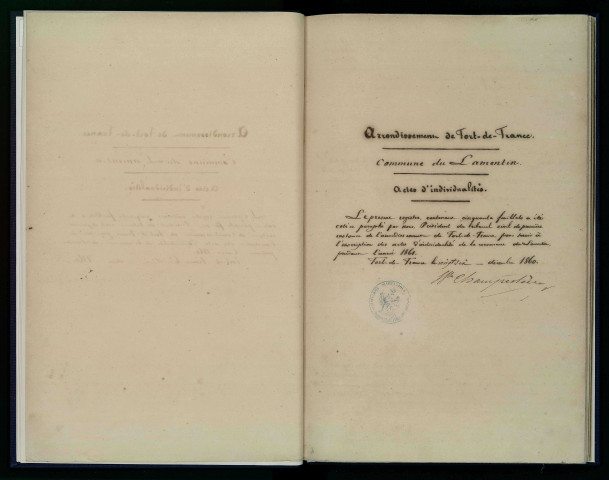 Arrondissement de Fort-de-France.
Commune du Lamentin.
Actes d'individualités.
Le présent registre contenant cinquante feuillets a été
coté et paraphé par nous Président du tribunal civil de première
instance de l'arrondissement de Fort-de-France pour servir à
l'inscription des actes d'individualité de la commune du Lamentin
pendant l'année 1861.
Fort-de-France le décembre 1860.